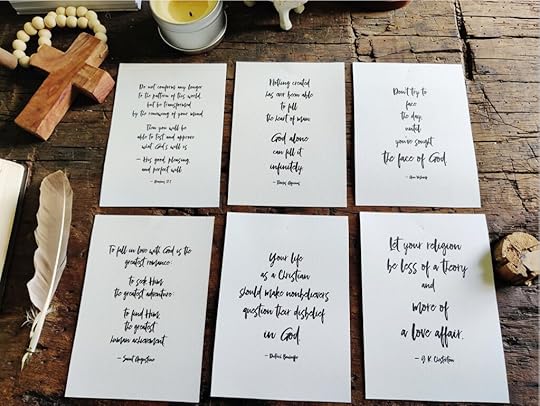 Do not conform any longer
to the pattern of this world,
but be transformed
by the renewing of your mind.
Then you will be
able to test and approve
what God's will is
– His good, pleasing,
and perfect will.
– Romans 12:2
Nothing created
has ever been able
to fill
the heart of man.
God alone
can fill it
infinitely.
– Thomas Aquinas
Don't try to
face
the day
until
you've sought
the face of God.
– Ann
To fall in love with God is the
greatest romance;
to seek Him
the greatest adventure;
to find Him,
the greatest
human achievement.
– Saint Augustine
Your life
as a Christian
should make nonbelievers
question their disbelief
in God.
– Dietrich Bonhoeffer
Let your religion
be less of a theory
and
more of
a love affair.
– G. K. Chesterton